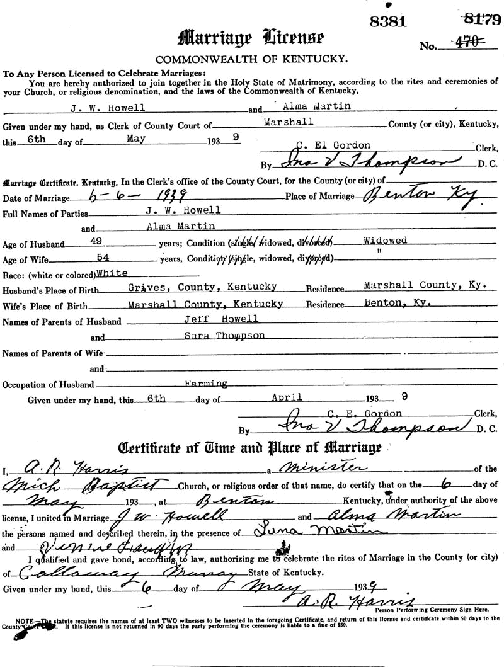 8381 8179
Marriage License No. 470
COMMONWEALTH OF KENTUCKY.
To Any Person Licensed to Celebrate Marriages:
You are hereby authorized to join together in the Holy State of Matrimony, according to the rites and ceremonies of
your Church, or religious denomination, and the laws of the Commonwealth of Kentucky,
J. W. Howell and Alma Martin
Given under my hand, as Clerk of County Court of Marshall County (or city), Kentucky,
this 6th day of May 193 9
C. El Gordon Clerk,
By Jno V Thompson D. C.
Marriage Certificate, Kentucky, In the Clerk's office of the County Court, for the County (or city) of
Date of Marriage 5-6-1939 Place of Marriage Benton Ky.
Full Names of Parties J. W. Howell
and Alma Martin
Age of Husband 49 years; Condition (single, widowed, divorced) Widowed
Age of Wife 54 years, Condition (single, widowed, divorced) "
Race: (white or colored) White
Husband's Place of Birth Graves, County, Kentucky Residence Marshall County, Ky.
Wife's Place of Birth Marshall County, Kentucky Residence Benton, Ky.
Names of Parents of Husband Jeff Howell
and Sara Thompson
Names of Parents of Wife
and
Occupation of Husband Farming
Given under my hand, this 6th day of April 193 9
C. E. Gordon Clerk,
By Jno V Thompson D. C.
Certificate of Time and Place of Marriage
I, A. R. Harris a Minister of the
Mich Baptist Church, or religious order of that name, do certify that on the 6 day of
May 193 , at Benton Kentucky, under authority of the above
license, I united in Marriage J W Howell and Alma Martin
the persons named and described therein, in the presence of Luna Martin
and
I qualified and gave bond, according to law, authorizing me to celebrate the rites of Marriage in the County (or city)
of Callaway Murray State of Kentucky.
Given under my hand, this 6 day of May 1939
A. R. Harris
Person Performing Ceremony Sign Here.
NOTE—The statute requires the names of at least TWO witnesses to be inserted in the foregoing Certificate, and return of this license and certificate within 90 days to the
County If this license is not returned in 90 days the party performing the ceremony is liable to a fine of $50.